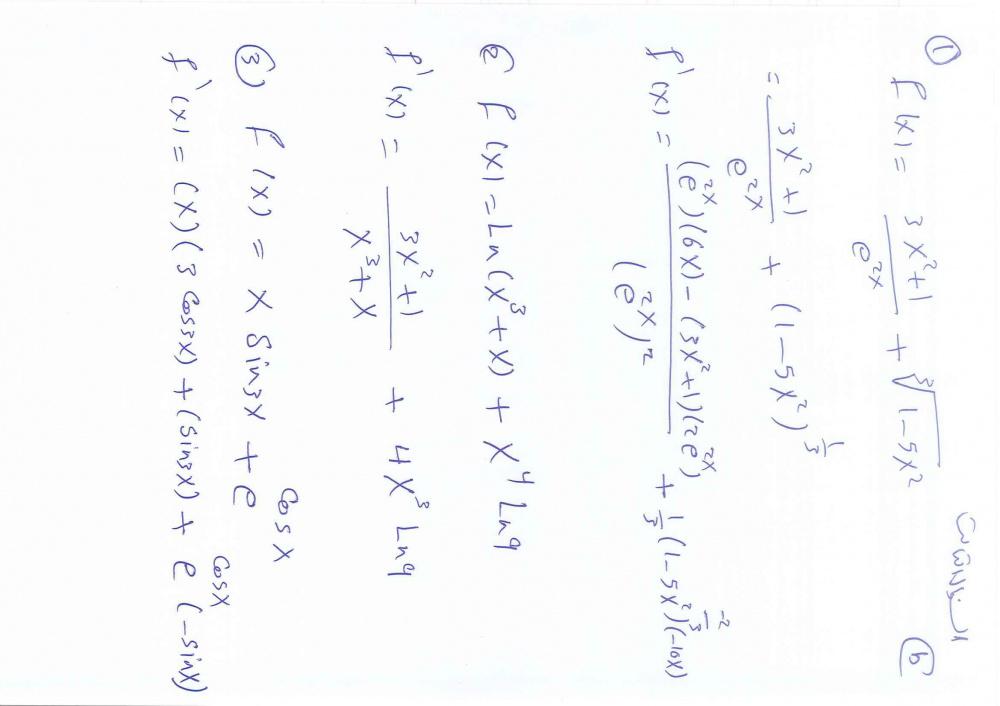 السادس
(b)
① f(x) = (3x²+1)/(e^2x) + ∛(1-5x²)
= (3x²+1)/(e^2x) + (1-5x²)^(1/3)
f'(x) = ((e^2x)(6x) - (3x²+1)(2e^2x))/((e^2x)²) + 1/3 (1-5x²)^(-2/3) (-10x)
② f(x) = Ln(x³+x) + x⁴ Ln9
f'(x) = (3x²+1)/(x³+x) + 4x³ Ln9
③ f(x) = x Sin3x + e^(Cosx)
f'(x) = (x)(3 Cos3x) + (Sin3x) + e^(Cosx) (-Sinx)